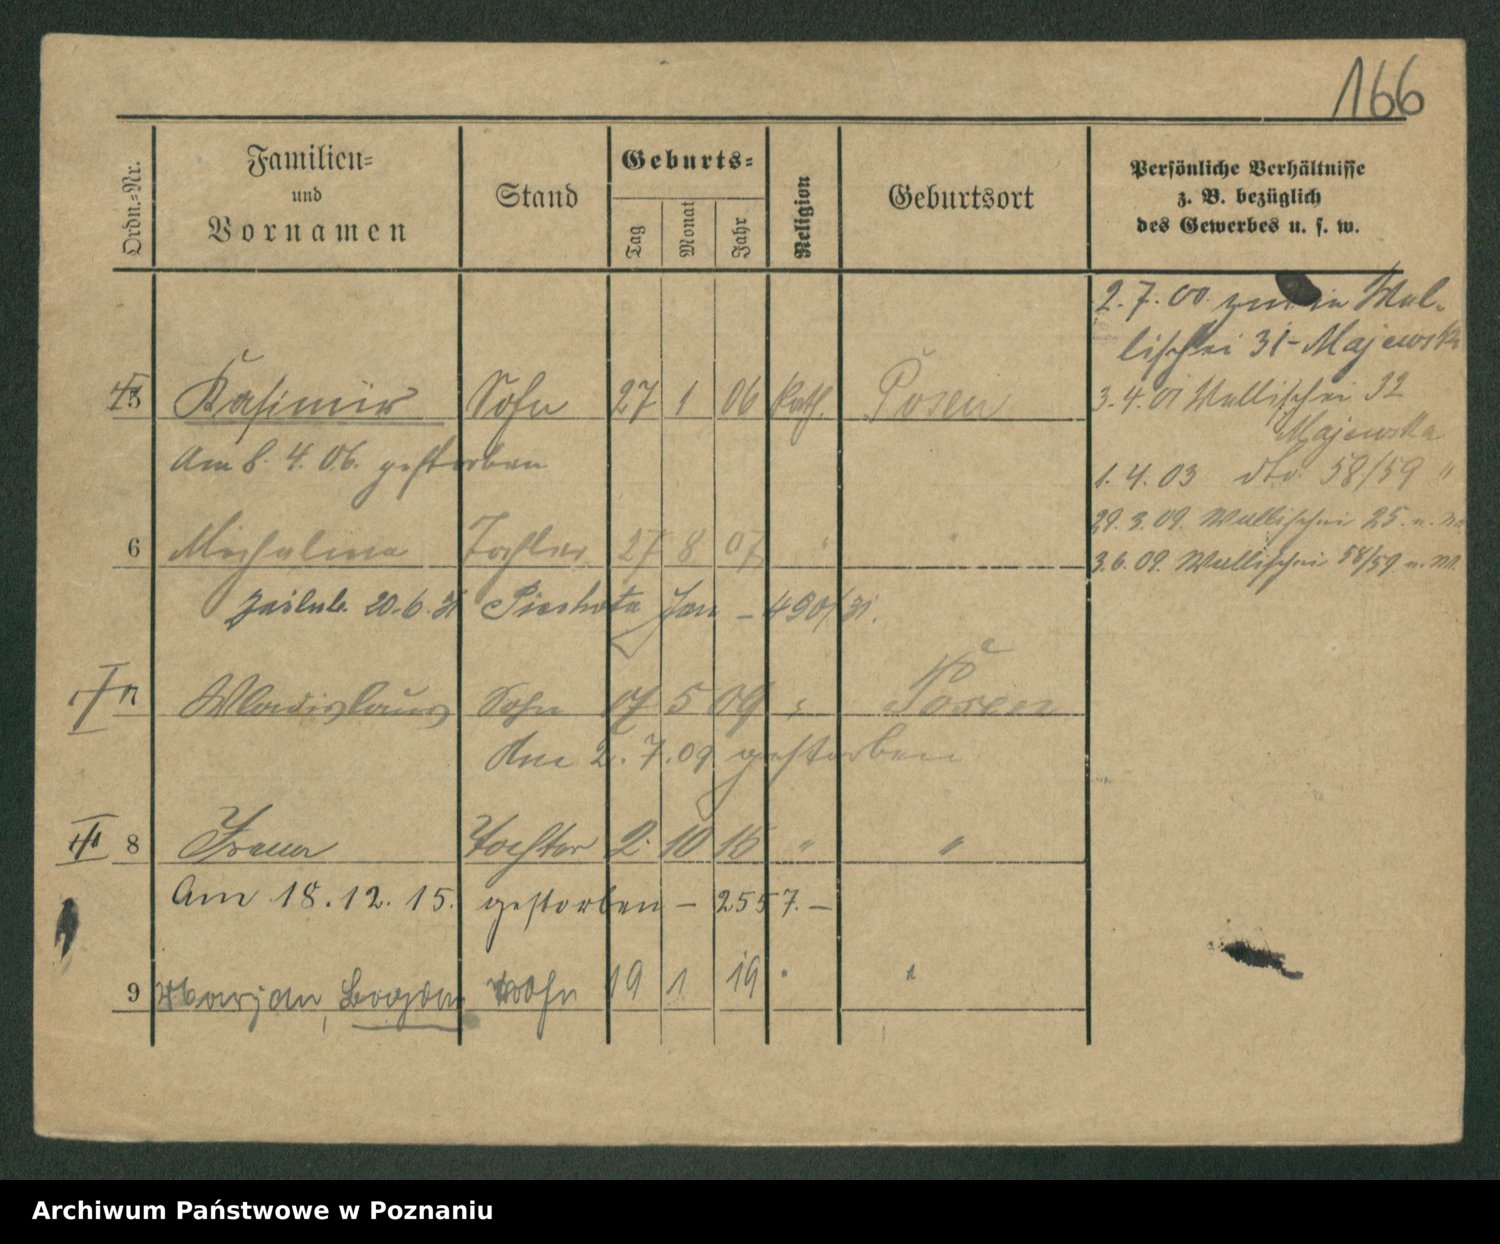 166
Ordn.-Nr.
Familien-
und
Vornamen
Stand
Geburts-
Tag
Monat
Jahr
Religion
Geburtsort
Persönliche Verhältnisse
z. B. bezüglich
des Gewerbes u. s. w.
2. 7. 00 in Wal-
lischei 31 - Majewska
5 Kasimir Sohn 27 1 06 Kath. Posen
3. 4. 01 Wallischei 32
Majewska
Am 8. 4. 06. gestorben
1. 4. 03 dto 58/59 "
29. 3. 09. Wallischei 25.
6 Michalina Tochter 27 8 07 " "
3. 6. 09. Wallischei 58/59
20.6.31 Piechota Jan - 490/31.
7 Wladislaus Sohn 5 09 " Posen
Am 2. 7. 09 gestorben
8 Irena Tochter 2. 10 15 " "
Am 18. 12. 15. gestorben - 2557. -
9 Marjan, Bogdan Sohn 19 1 19 " "
Archiwum Państwowe w Poznaniu